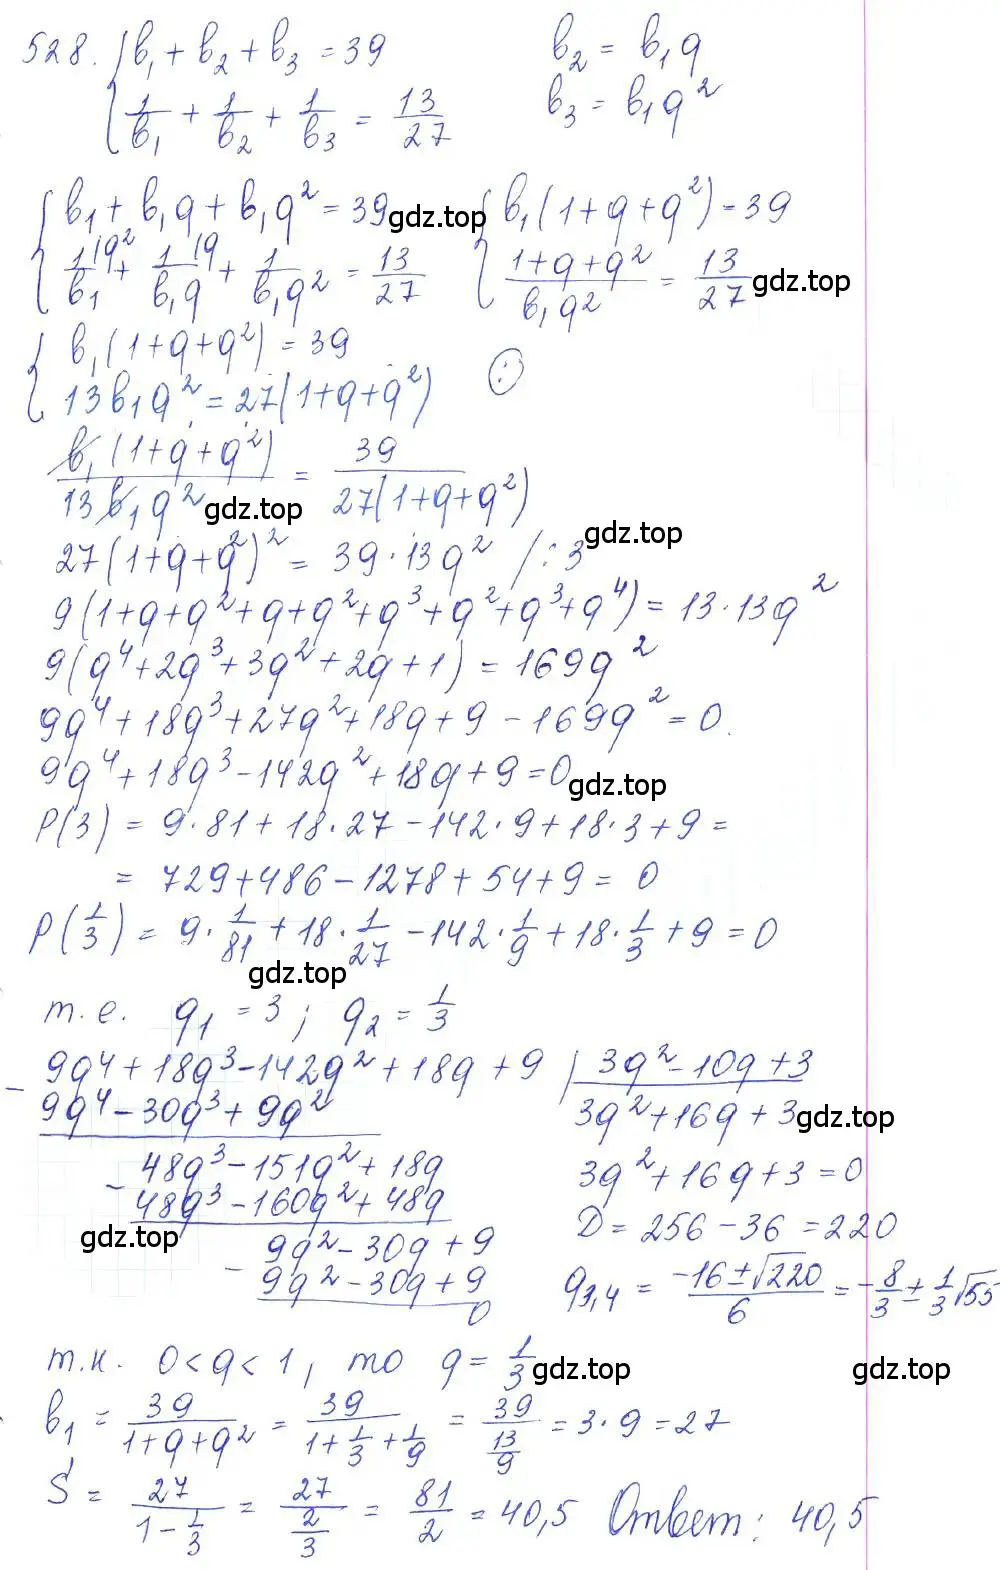 528. { b₁ + b₂ + b₃ = 39    b₂ = b₁q
{ 1/b₁ + 1/b₂ + 1/b₃ = 13/27    b₃ = b₁q²
{ b₁ + b₁q + b₁q² = 39 gdz.top { b₁(1+q+q²) = 39
{ 1/b₁ \q² + 1/(b₁q) \q + 1/(b₁q²) = 13/27 { (1+q+q²)/(b₁q²) = 13/27 gdz.top
{ b₁(1+q+q²) = 39
{ 13b₁q² = 27(1+q+q²) (:)
b₁(1+q+q²)/(13b₁q²) = 39/(27(1+q+q²))
gdz.top
27(1+q+q²)² = 39·13q² /:3 gdz.top
9(1+q+q²+q+q²+q³+q²+q³+q⁴) = 13·13q²
9(q⁴+2q³+3q²+2q+1) = 169q²
9q⁴+18q³+27q²+18q+9-169q² = 0.
9q⁴+18q³-142q²+18q+9=0 gdz.top
P(3) = 9·81+18·27-142·9+18·3+9 =
= 729+486-1278+54+9 = 0
P(1/3) = 9·1/81 + 18·1/27 - 142·1/9 + 18·1/3 + 9 = 0
gdz.top
т.е. q₁ = 3; q₂ = 1/3
- 9q⁴+18q³-142q²+18q+9 | 3q²-10q+3
9q⁴-30q³+9q²    3q²+16q+3 gdz.top
- 48q³-151q²+18q    3q²+16q+3=0
48q³-160q²+48q    D = 256-36 = 220
gdz.top
- 9q²-30q+9
9q²-30q+9    q₃,₄ = (-16±√220)/6 = -8/3 ± 1/3√55
0
т.к. 0<q<1, то q = 1/3 gdz.top gdz.top
b₁ = 39/(1+q+q²) = 39/(1+1/3+1/9) = 39/(13/9) = 3·9 = 27
S = 27/(1-1/3) = 27/(2/3) = 81/2 = 40,5 Ответ: 40,5